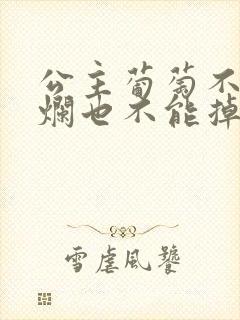 公主葡萄不
爛也不能掉
雪虐風饕